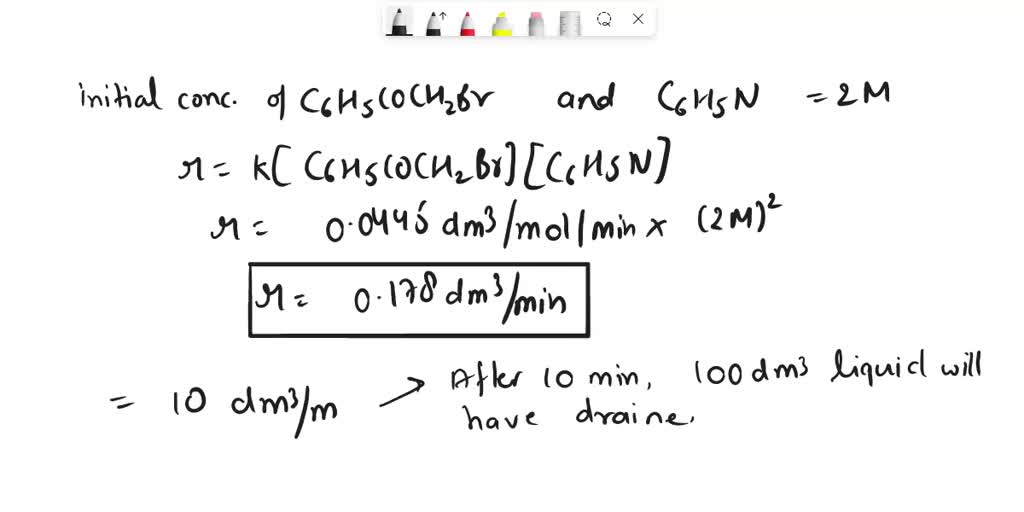 initial conc. of C6H5COCH2Br and C6H5N = 2M
r = k[C6H5COCH2Br][C6H5N]
r = 0.0445 dm3/mol/min x (2M)2
r = 0.178 dm3/min
= 10 dm3/m → After 10 min, 100 dm3 liquid will
have draine.